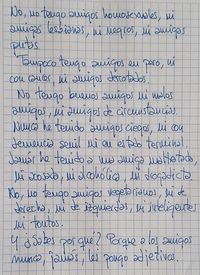 No, no tengo amigos homosexuales, ni
amigas lesbianas, ni negros, ni amigas
putas.
Tampoco tengo amigos en paro, ni
con canas, ni amigos derrotados.
No tengo buenos amigos ni malos
amigos, ni amigos de circunstancias.
Nunca he tenido amigos ciegos, ni con
demencia senil ni en estado terminal.
Jamás he tenido a una amiga maltratada,
ni acosada, ni alcohólica, ni drogadicta.
No, no tengo amigos vegetarianos, ni de
derecha, ni de izquierdas, ni inteligentes
ni tontos.
Y ¿Sabes por qué? Porque a los amigos
nunca, jamás, les pongo adjetivos.